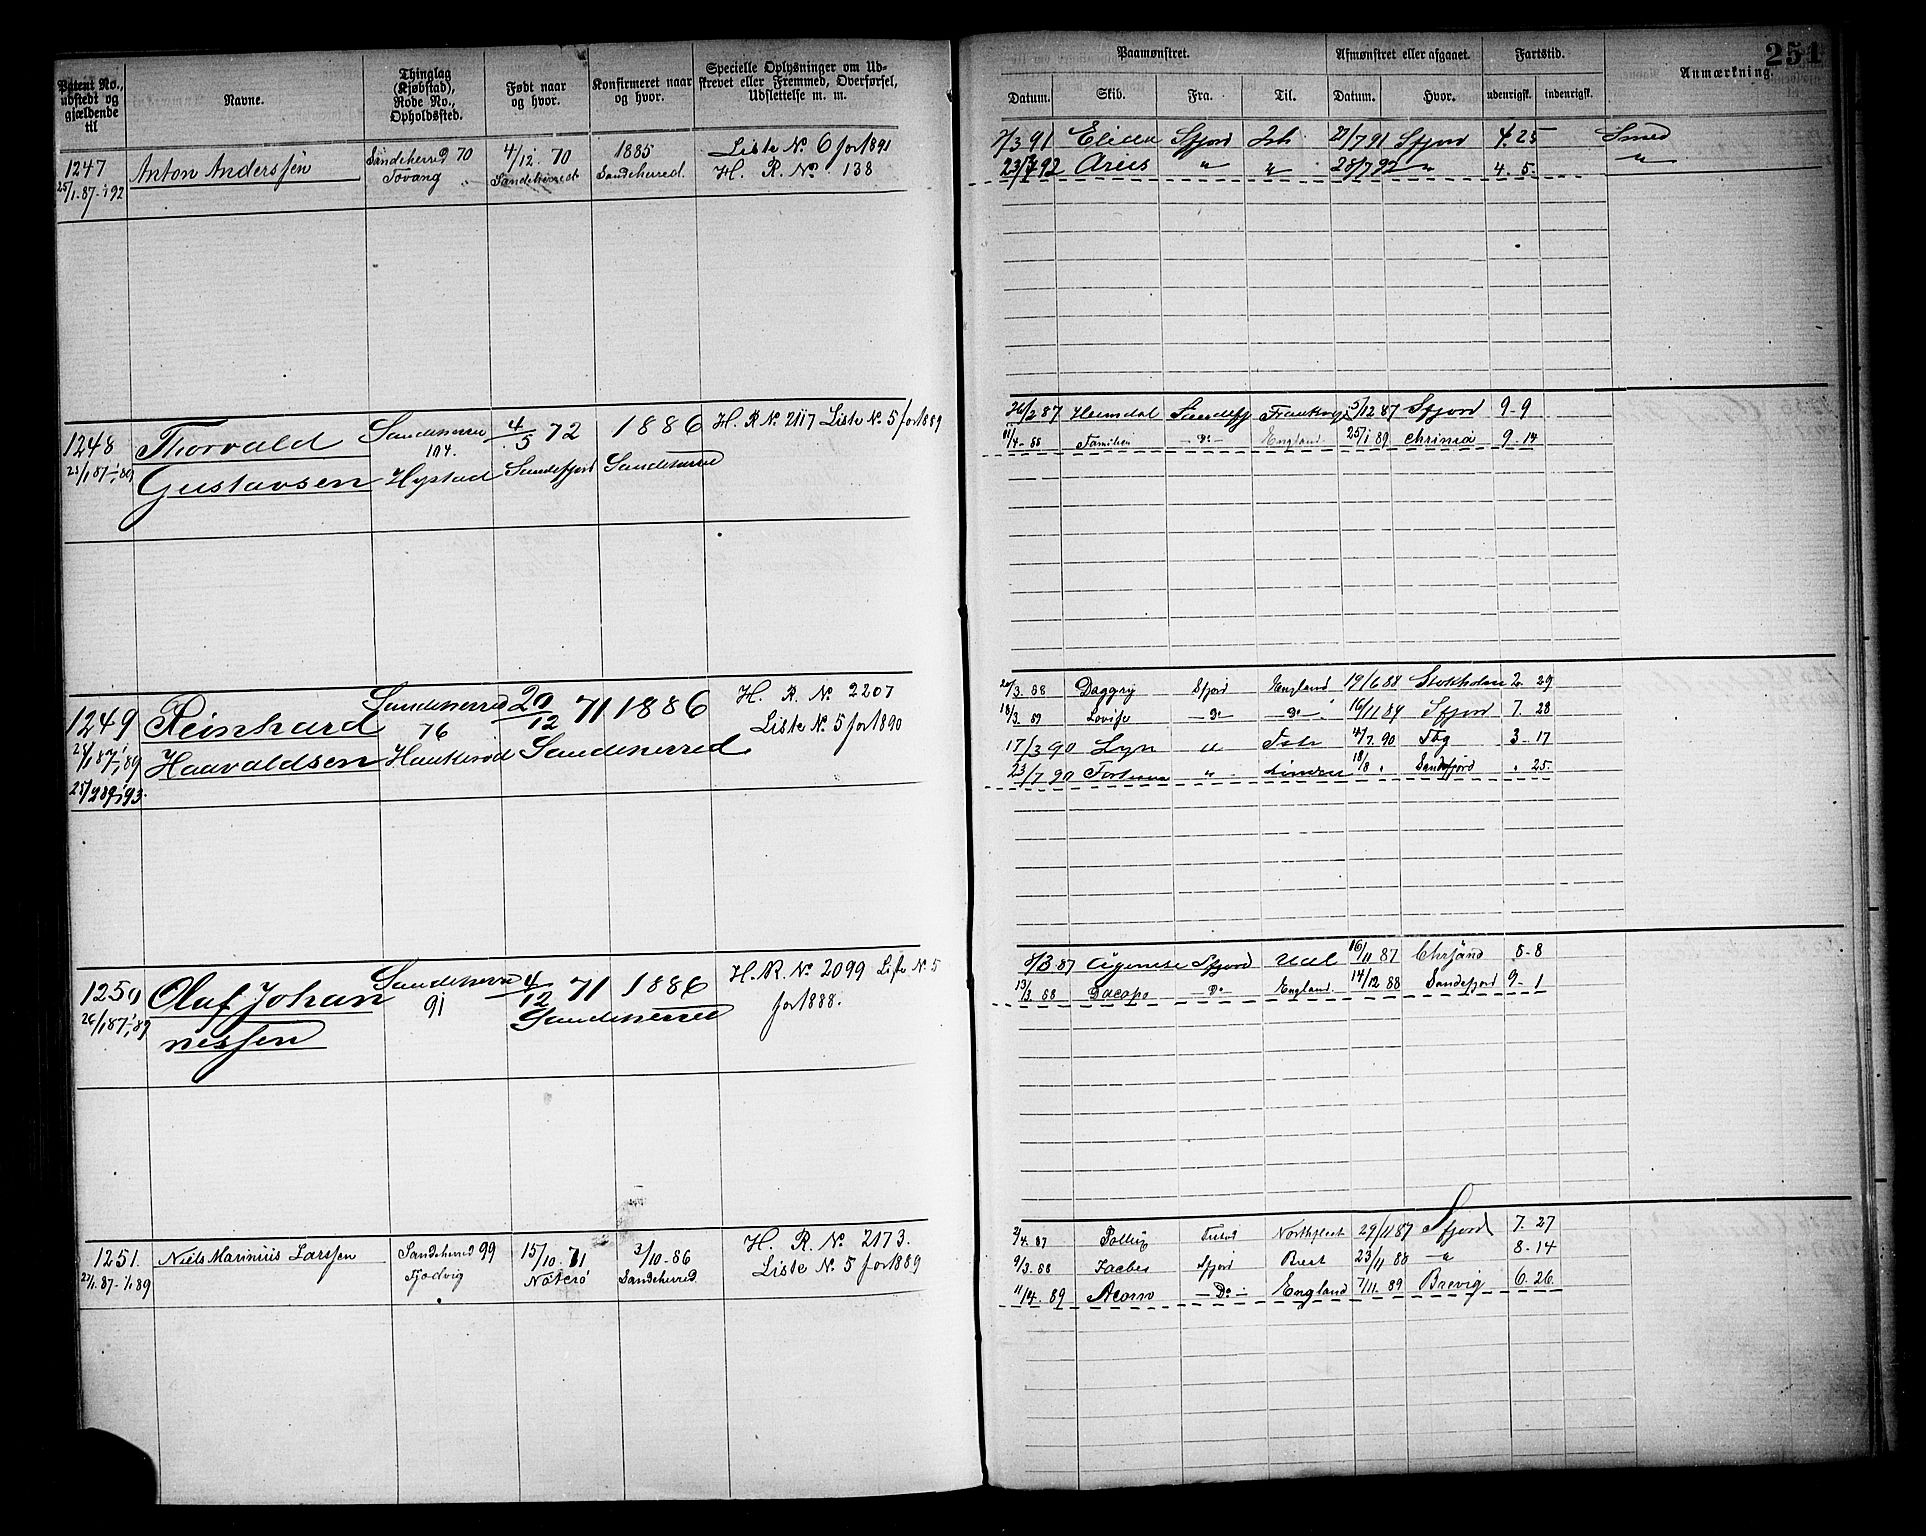 Patent No., udstedt og gjældende til
Navne.
Thinglag (Kjøbstad), Rode No., Opholdssted.
Født naar og hvor.
Konfirmeret naar og hvor.
Specielle Oplysninger om Udskrevet eller Fremmed, Overførsel, Udslettelse m. m.
Paamønstret.
Afmønstret eller afgaaet.
Fartstid.
251
Datum. Skib. Fra. Til. Datum. Hvor. udenrigsk. indenrigsk. Anmærkning.
1247
25/1.87-1/1 92
Anton Anderssen
Sandeherred 70
Tovang "
4/12. 70
Sandeherred
1885
Sandeherred.
Liste No 6 for 1891
H. R. No 138
7/3 91 Elida Sfjord Ish 21/7 91 Sfjord 4. 25 Smed
92 " " 28/7 92 " 4. 5. "
1248
Thorvald
Gustavsen
Sandeherred
104.
Hystad
4/5 72
Sandefjord
1886
Sandeherred
H. R No 2117 Liste No. 5 for 1889
26/2 87 Heimdal Sandefj 5/12 87 Sfjord 9-9
11/4-88 Familien -Do- England 25/1 89 Chrinia 9-14
1249
Reinhard
Haavaldsen
Sandeherred
76
Haukerød
20/12 71
Sandeherred
1886
H. R. No 2207
Liste No. 5 for 1890
20/3. 88 Daggry Sfjord England 19/6 88 Stokholm 2. 29
18/3. 89 Lovise -Do- -Do- 16/11 89 Sfjord 7. 28
17/3 90 Lyn " 4/7. 90 Tbg 3-17
23/7 90 Fortuna " 18/8 " Sandefjord " 25
1250
26/1 87-1/1 89
Olaf Johan
nessen
Sandeherred
91
4/12 71
Sandeherred
1886
H. R. No. 2099 Liste No. 5
for 1888.
8/3 87 Sfjord 16/11 87 Chrsand 8-8
13/3 88 Dacapo -Do- England. 14/12 88 Sandefjord 9-1
1251.
27/1.87-1/1.89
Niels Marinius Larssen
Sandeherred 99
Fjodvig
15/10. 71
Nøterø
3/10-86
Sandeherred.
H. R. No. 2173.
Liste No. 5 for 1889
2/4. 87 Northfleet 29/11 87 Sfjord 7. 27
9/3. 88 Sfjord Brest 23/11 88 " 8-14
11/4. 89 -Do- England 7/11. 89 Brevig 6. 26